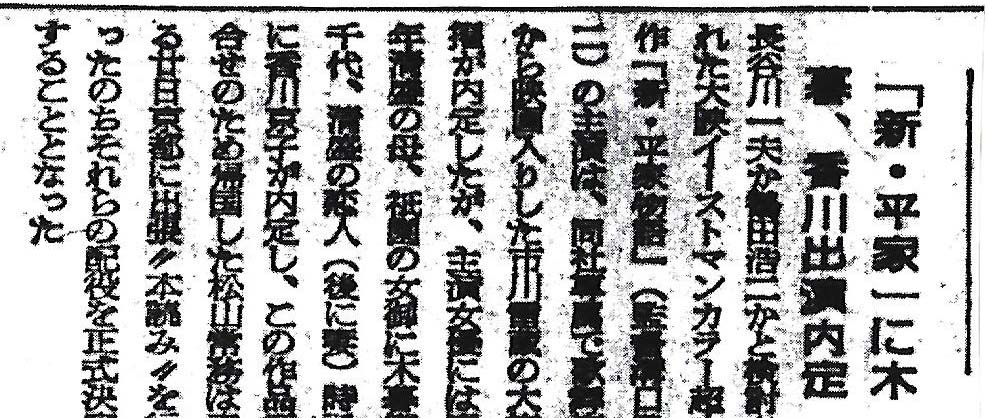 「新・平家」に木
暮、香川出演内定
長谷川一夫か鶴田浩二かと検討
れた大映イーストマンカラー超
作「新・平家物語」（監督溝口
二）の主演は、同社専属で歌舞
から映画入りした市川雷蔵の大
擢が内定したが、主演女優には
年清盛の母、祇園の女御に木暮
千代、清盛の恋人（後に妻）時
に香川京子が内定し、この作品
合せのため帰国した松山常務は
る廿日京都に出張〃本読み〃を
ったのちそれらの配役を正式決
することとなった